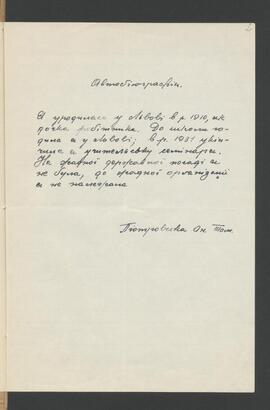 2
Автобіографія.
Я уродилася у Львові в р. 1910, як
дочка робітника. До школи хо-
дила я у Львові; в р. 1931 укін-
чила я учительську семінарію.
На жадній державній посаді я
не була, до жадної організації
я не належала
Ан. Том.